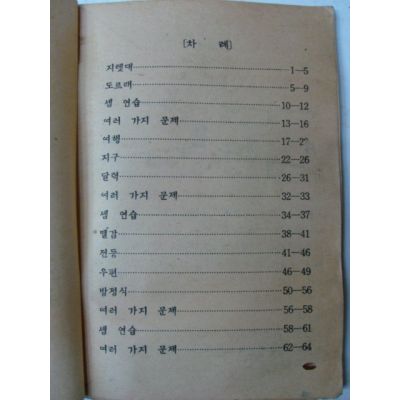 [차 례]
지렛대 1—5
도르래 5—9
셈 연습 10—12
여러 가지 문제 13—16
여행 17—2
지구 22—26
달력 26—31
여러 가지 문제 32—33
셈 연습 34—37
땔감 38—41
전등 41—46
우편 46—49
방정식 50—56
여러 가지 문제 56—58
셈 연습 58—61
여러 가지 문제 62—64